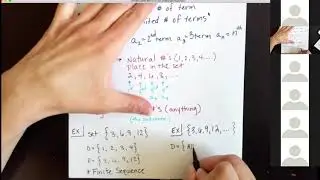 # of term
ited # of terms"
a₂=2ⁿᵈ term a₃=3 term aₙ=nᵗʰ
Natural #'s (1,2,3,4,....)
place in the set
2, 4, 6, 8, ....
#'s (anything)
EX set {3,6,9,12}
D={1, 2, 3, 4}
R= {3, 6, 9, 12}
* Finite Sequence
EX {3,6,9,12, ....}
D={ All